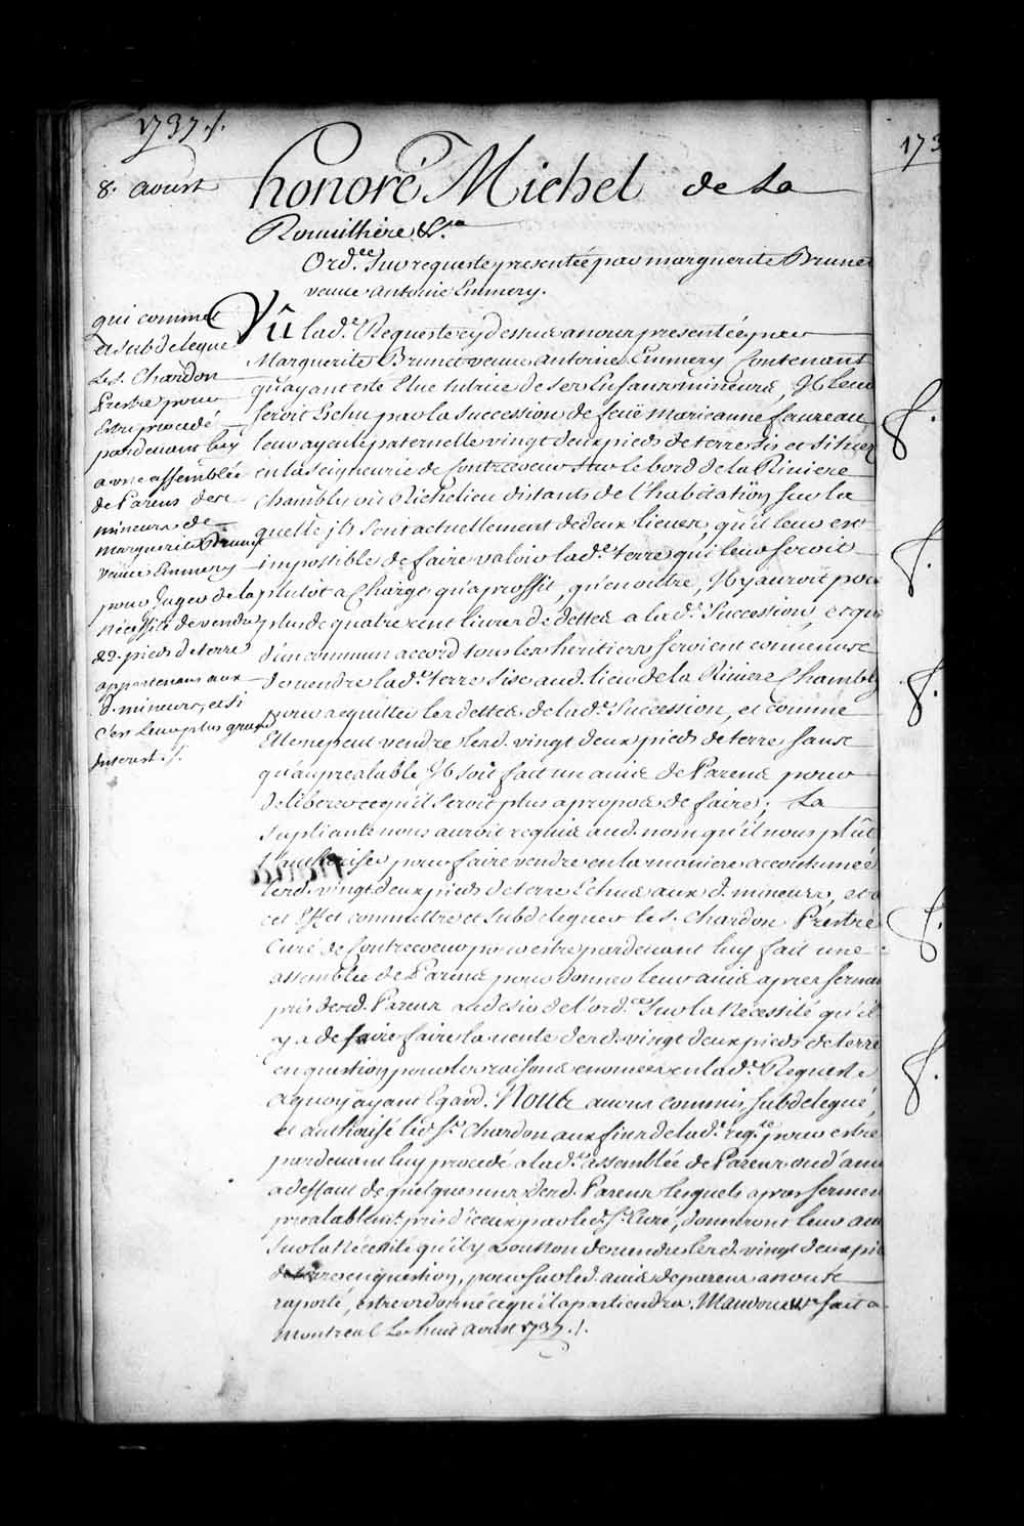 1737./.
8. aoust
honoré Michel de La
Rouuilliere &.ra
Ord.ce Sur requeste presentée par marguerite Brunet
veuue Antoine Emmery.
qui commet
et subdelegue
Le S. Chardon
Prestre pour
Estre procedé
pardeuant luy
a vne assemblée
de Parens des
mineurs de
marguerite Brunet
veuue Emmery
pour Juger de la
Necessité de vendre
22. pieds de terre
appartenans aux
d. mineurs, et si
c'est Leur plus grand
Interest ./.
Vû lad.e Requeste cy dessus a nous presentée par
Marguerite Brunet veuue Antoine Emmery Contenant
qu'ayant esté Elue tutrice de ses Enfans mineurs, Il leur
seroit Echu par la succession de feüe marieanne faureau
leur ayeule paternelle vingt deux pieds de terre sis et situez
en la seigneurie de Contrecoeur Sur le bord de la Riviere
Chambly ou Richelieu distants de l'habitation sur la
quelle ils sont actuellement de deux lieues, qu'il leur est
impossible de faire valoir lad.e terre qui leur seroit
plutot a Charge qu'a proffit, qu'en outre, Il y auroit pour
plus de quatre cent livres de dettes a lad.e Succession, et que
d'un commun accord tous les heritiers seroient conuenus
de vendre lad.e terre sise aud. lieu de la Riviere Chambly
pour acquitter les dettes de lad.e Succession, et comme
Elle ne peut vendre lesd. vingt deux pieds de terre sans
qu'au prealable Il soit fait un auis de Parens pour
deliberer ce qu'il seroit plus a propos de faire; La
supliante nous auroit requis aud. nom qu'il nous plût
l'authoriser pour faire vendre en la maniere accoutumée
lesd. vingt deux pieds de terre Echus aux d. mineurs, et a
cet Effet commettre et subdeleguer le S. Chardon Prestre
Curé de Contrecoeur pour estre pardeuant luy fait une
assemblée de Parens pour donner leur auis apres serment
pris desd. Parens au desir de l'ord.ce Sur la Necessité qu'il
y a de faire faire la vente desd. vingt deux pieds de terre
en question pour les raisons enoncées en lad.e Requeste
a quoy ayant Egard. Nous auons commis, subdelegué,
et authorisé led. S.r Chardon aux fins de lad.e req.te pour estre
pardeuant luy procedé a lad.e assemblée de Parens ou d'amis
a deffaut de quelques uns desd. Parens lesquels apres serment
prealablem.t pris d'iceux par led. S.r Curé, donneront leur auis
Sur la Necessité qu'il y a ou non de vendre lesd. vingt deux pieds
de terre en question, pour sur led. auis de parens a nous
raporté, estre ordonné ce qu'il apartiendra, Mandons &.ra fait a
Montreal Le huit aoust 1737 ./.
173